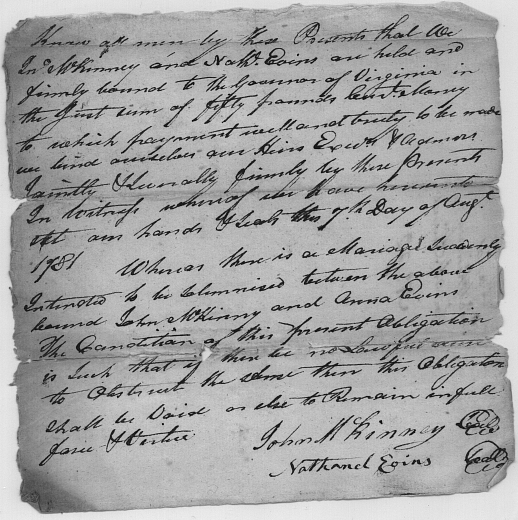 Know all men by these Presents that We
Jno. McKinney and Nathl. Evins are held and
firmly bound to the Govenor of Virginia in
the Just sum of fifty pounds Curt. Money
to which payment well and truly to be made
we bind ourselves our Heirs Exers. & Admors.
Jointly & Severally firmly by these Presents
In Witness whereof we have hereunto
set our hands & seals this 9th Day of Augt.
1781 Whereas there is a Mariage Suddenly
Intended to be Solemnised between the above
bound John McKinny and Anna Evins
The Condition of this present Obligation
is Such that if there be no Lawful cause
to Obstruct the same then this Obligation
shall be Void or else to Remain in full
force & Virtue.
John McKinney Seal
Nathanel Evins Seal